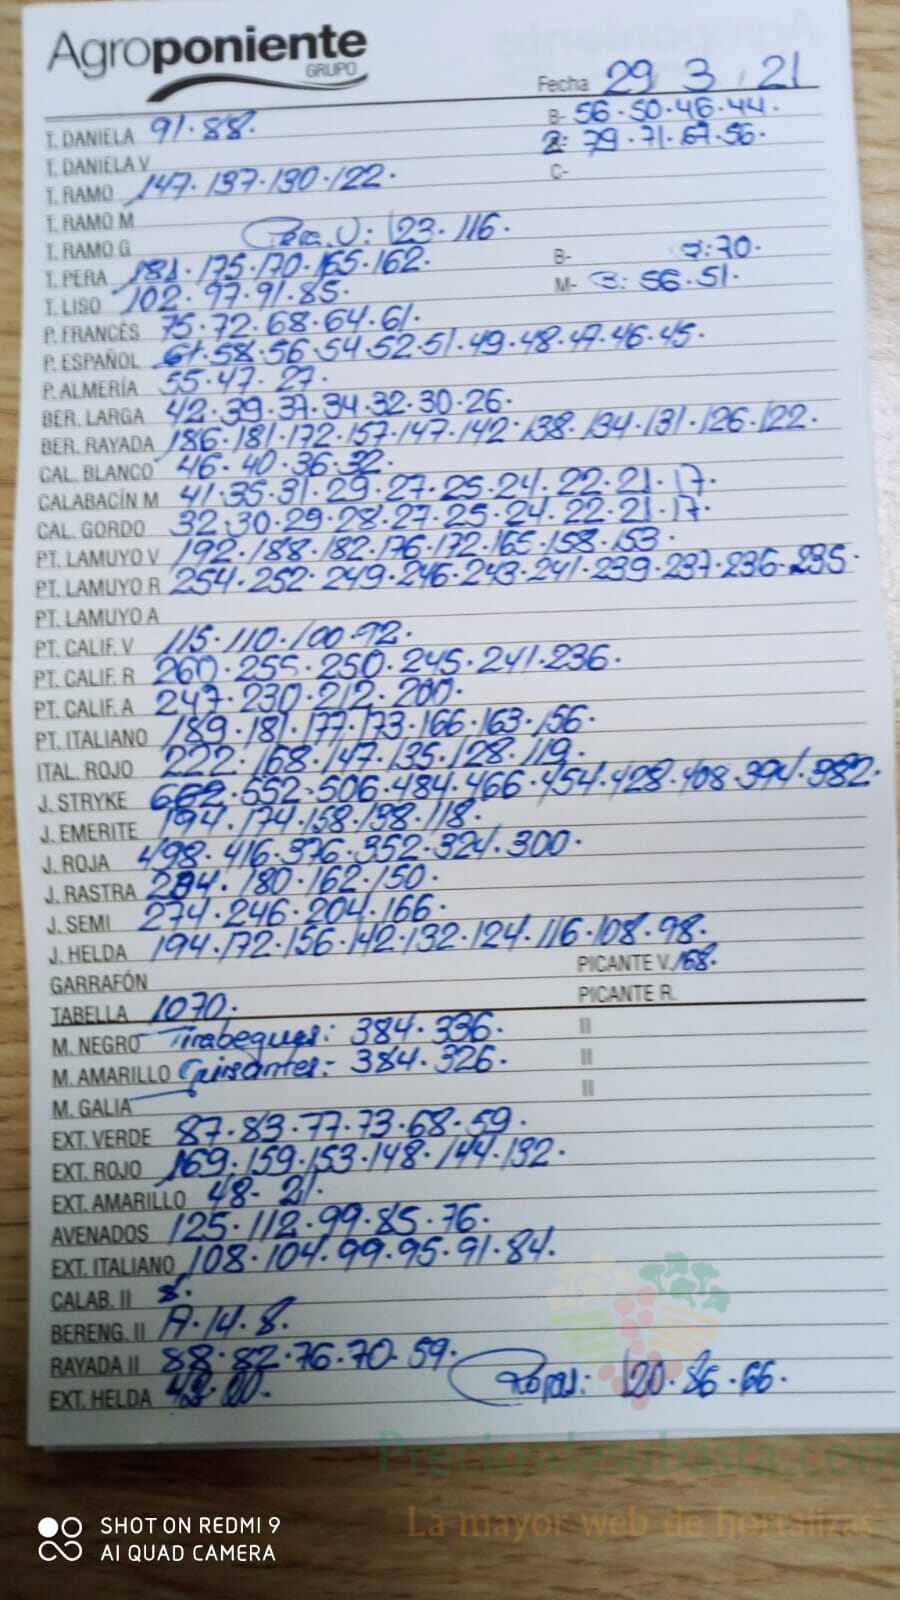 Agroponiente
GRUPO
Fecha 29 / 3 / 21
T. DANIELA 91.88. B- 56.50.46.44.
T. DANIELA V 2: 79.71.67.56.
T. RAMO 147.137.130.122. C-
T. RAMO M
T. RAMO G Pera V: 123.116.
T. PERA 181.175.170.165.162. B- 3:70.
T. LISO 102.97.91.85. M- 3: 56.51.
P. FRANCÉS 75.72.68.64.61.
P. ESPAÑOL 61.58.56.54.52.51.49.48.47.46.45.
P. ALMERÍA 55.47.27.
BER. LARGA 42.39.37.34.32.30.26.
BER. RAYADA 186.181.172.157.147.142.138.134.131.126.122.
CAL. BLANCO 46.40.36.32.
CALABACÍN M 41.35.31.29.27.25.24.22.21.17.
CAL. GORDO 32.30.29.28.27.25.24.22.21.17.
PT. LAMUYO V 192.188.182.176.172.165.158.153.
PT. LAMUYO R 254.252.249.246.243.241.239.237.236.235.
PT. LAMUYO A
PT. CALIF. V 115.110.100.92.
PT. CALIF. R 260.255.250.245.241.236.
PT. CALIF. A 247.230.212.200.
PT. ITALIANO 189.181.177.173.166.163.156.
ITAL. ROJO 222.168.147.135.128.119.
J. STRYKE 552.506.484.466.454.428.408.394.382.
J. EMERITE 194.174.158.138.118.
J. ROJA 498.416.376.352.324.300.
J. RASTRA 180.162.150.
J. SEMI 274.246.204.166.
J. HELDA 194.172.156.142.132.124.116.108.98.
GARRAFÓN PICANTE V. 168.
TABELLA 1070. PICANTE R.
M. NEGRO Tirabeques: 384.336. II
M. AMARILLO Guisantes: 384.326. II
M. GALIA II
EXT. VERDE 87.83.77.73.68.59.
EXT. ROJO 169.159.153.148.144.132.
EXT. AMARILLO 48-21.
AVENADOS 125.112.99.85.76.
EXT. ITALIANO 108.104.99.95.91.84.
CALAB. II 8.
BERENG. II 14.8.
RAYADA II 88.82.76.70.59.
EXT. HELDA Rojas: 120.86.66.
Preciosdesubasta.com
La mayor web de hortalizas
SHOT ON REDMI 9
AI QUAD CAMERA